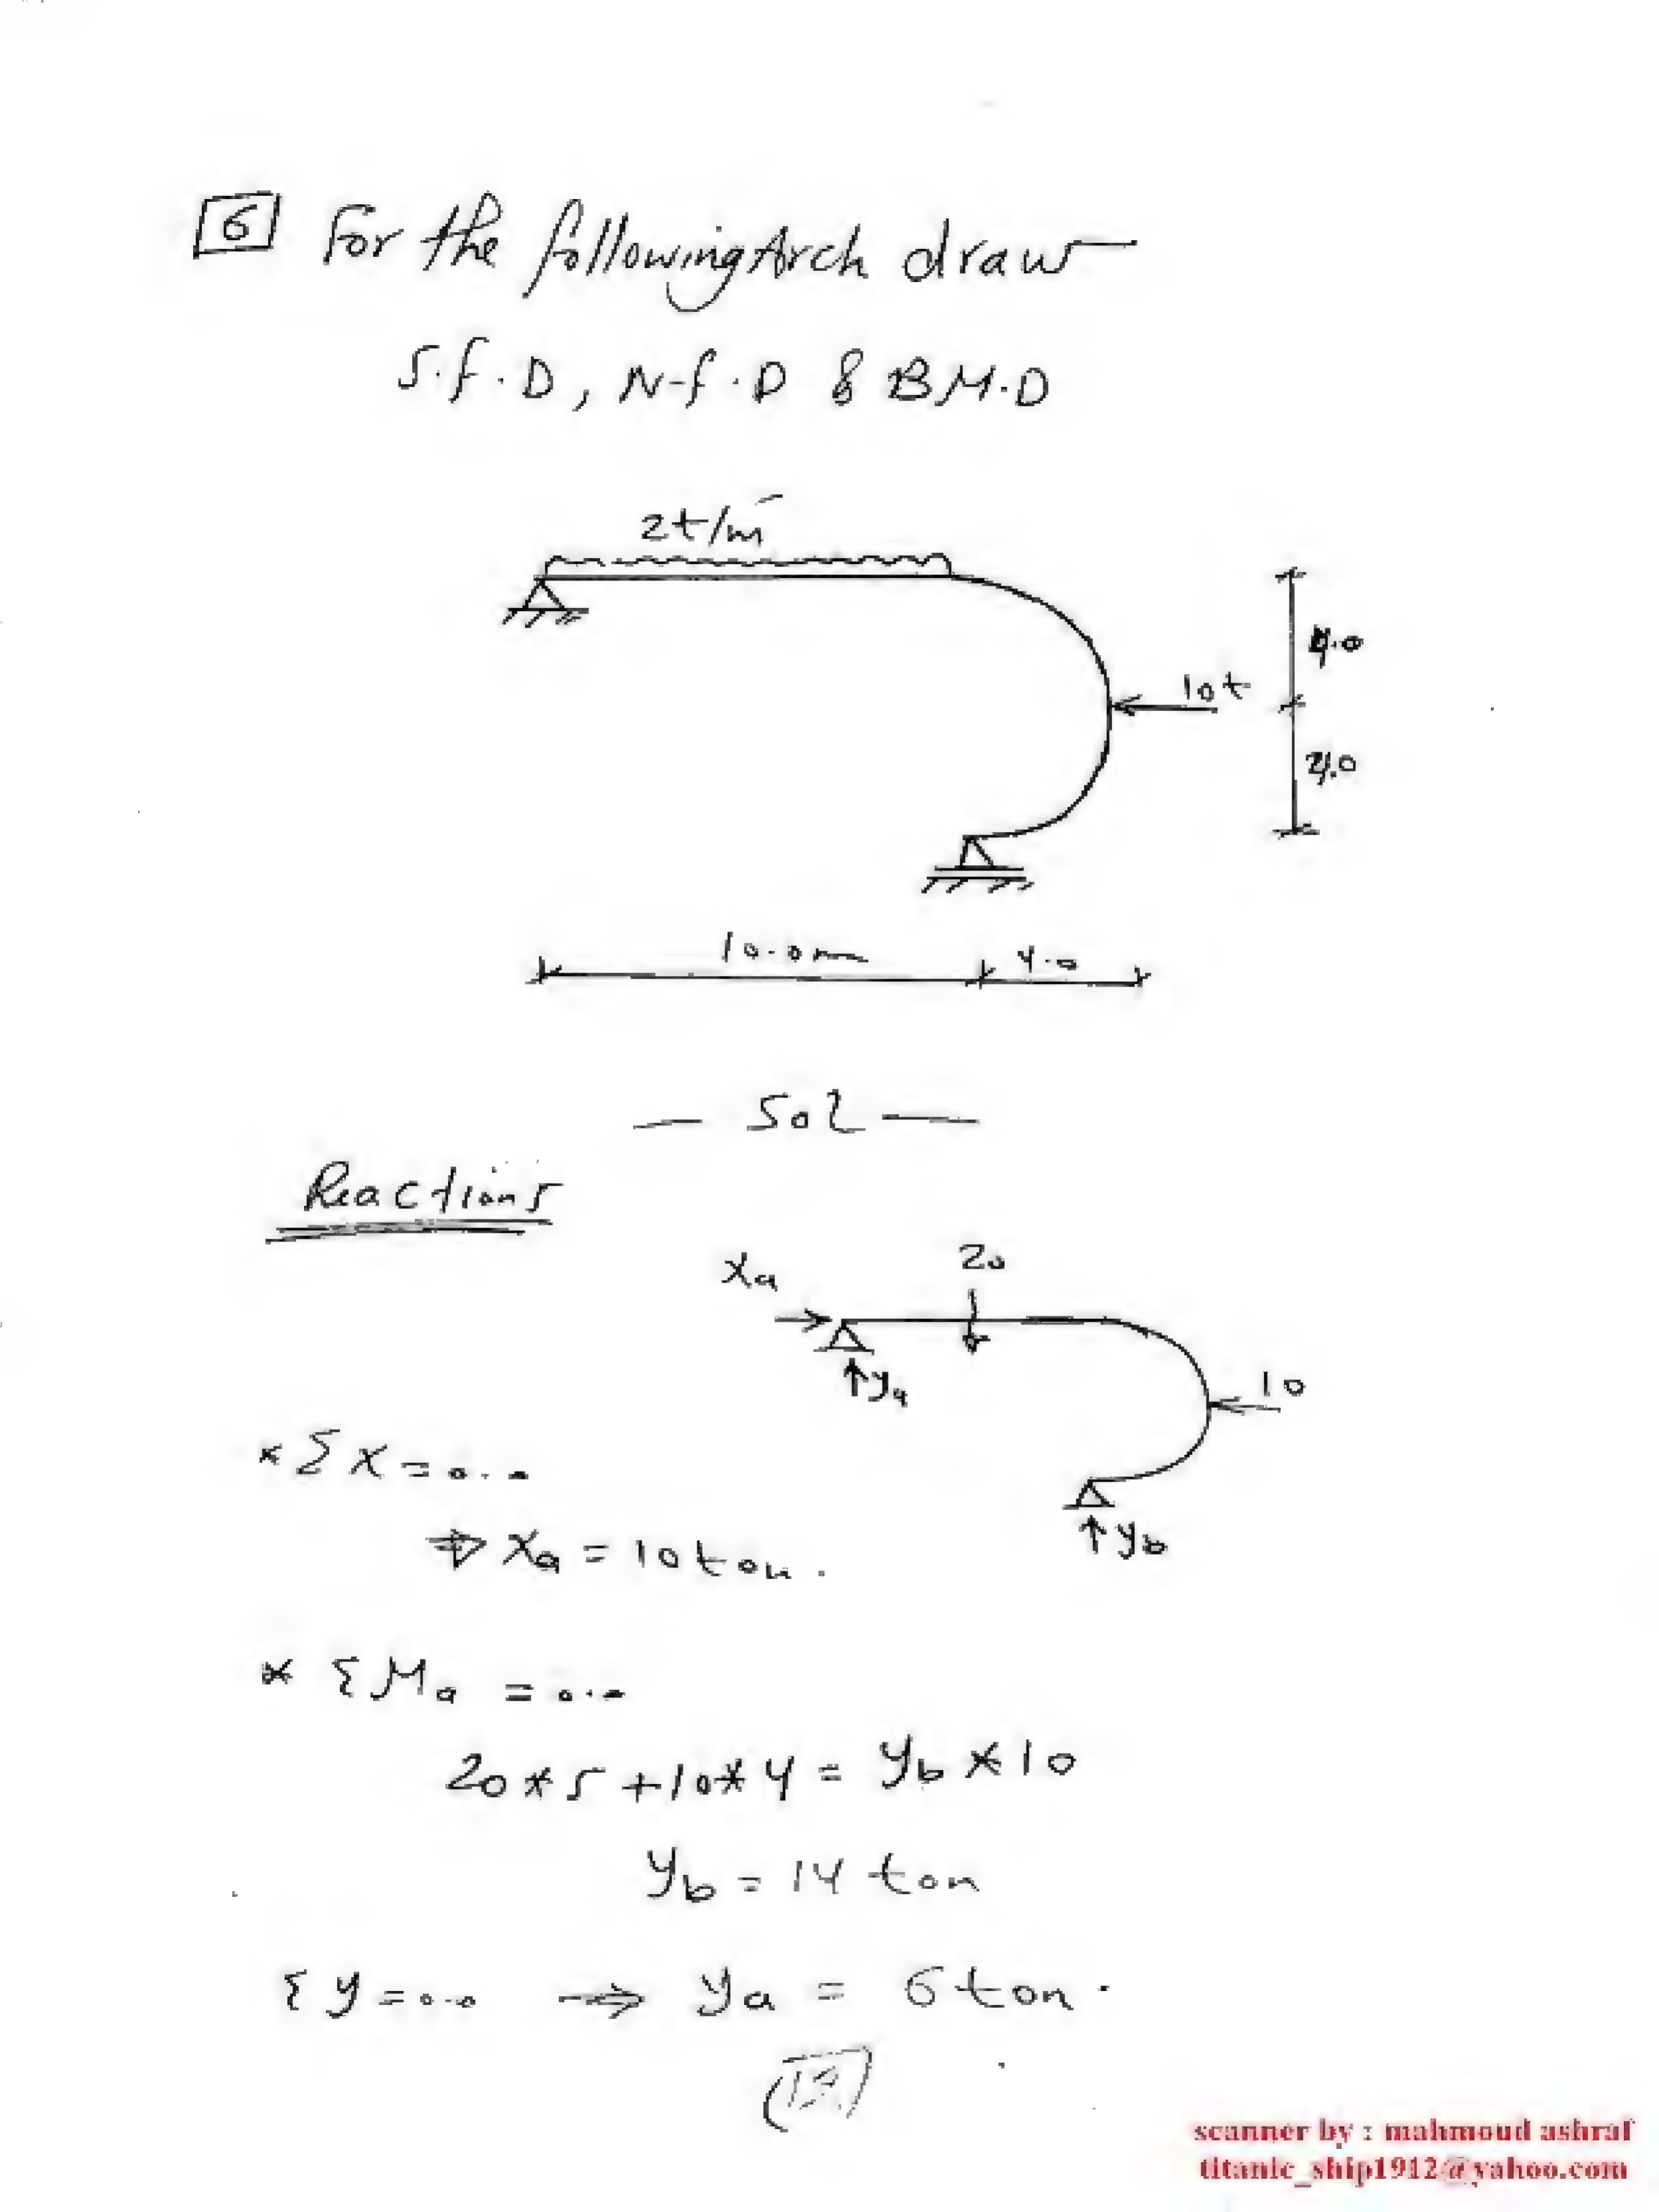 6 For the following Arch draw
S.f.D, N.f.D & B.M.D
2t/m
4.0
10t
4.0
10.0m 4.0
— Sol —
Reactions
Xa 20
ya 10
* Σ X = 0.0
yb
⇒ Xa = 10 ton.
* Σ Ma = 0.0
20 * 5 + 10 * 4 = yb * 10
yb = 14 ton
Σ y = 0.0 → ya = 6 ton.
scanner by : mahmoud ashraf
titanic_ship1912@yahoo.com